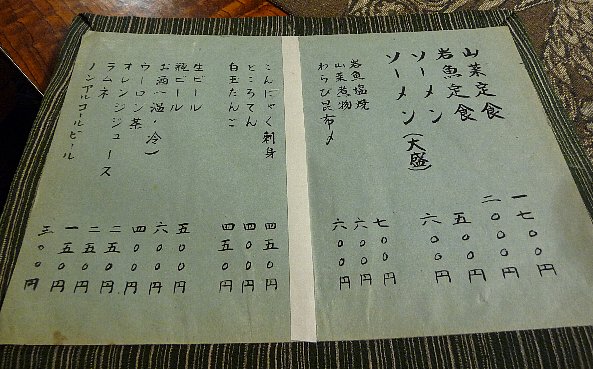 山菜定食 一七〇〇円
岩魚定食 二〇〇〇円
ソーメン 五〇〇円
ソーメン(大盛) 六〇〇円
岩魚塩焼 七〇〇円
山菜煮物 六〇〇円
わらび昆布〆 六〇〇円
こんにゃく刺身 四五〇円
ところてん 四〇〇円
白玉だんご 四五〇円
生ビール 五〇〇円
瓶ビール 六〇〇円
お酒(温・冷) 四〇〇円
ウーロン茶 二五〇円
オレンジジュース 二五〇円
ラムネ 一五〇円
ノンアルコールビール 三〇〇円